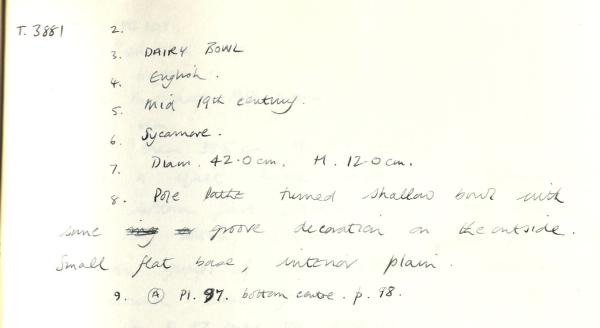 T. 3881 2.
3. DAIRY BOWL
4. English.
5. Mid 19th century.
6. Sycamore.
7. Diam. 42.0 cm. H. 12.0 cm.
8. Pole lathe turned shallow bowl with
some groove decoration on the outside.
Small flat base, interior plain.
9. Ⓐ Pl. 97. bottom centre. p. 98.